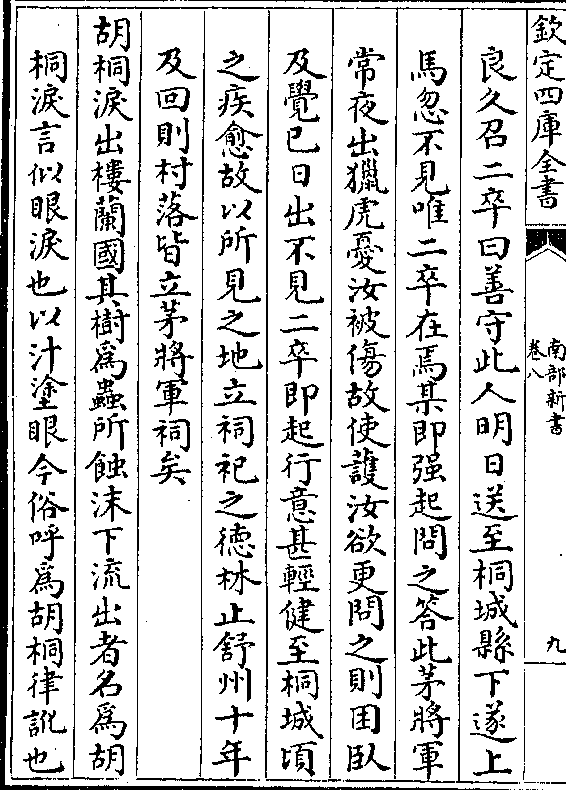 欽定四庫全書
南部新書
卷八
九
良久召二卒曰善守此人明日送至桐城縣下遂上
馬忽不見唯二卒在焉某即强起問之答此茅將軍
常夜出獵虎憂汝被傷故使䕶汝欲更問之則困臥
及覺已日出不見二卒即起行意甚輕健至桐城頃
之疾愈故以所見之地立祠祀之徳林止舒州十年
及回則村落皆立茅將軍祠矣
胡桐淚出樓蘭國其樹為蟲所蝕沫下流出者名為胡
桐淚言似眼淚也以汁塗眼今俗呼為胡桐律訛也